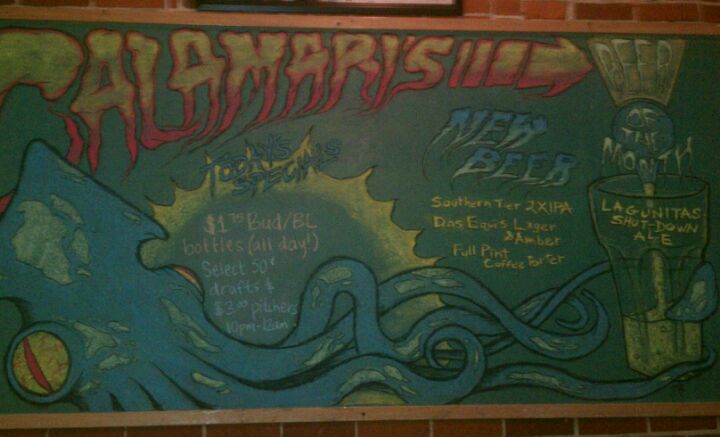 CALAMARI'S
TODAY'S
SPECIALS
$1.75 Bud/BL
bottles (all day!)
Select 50¢
drafts &
$3.00 pitchers
10pm-12am
NEW
BEER
Southern Tier 2XIPA
Dos Equis Lager
& Amber
Full Pint
Coffee Porter
BEER
OF
THE
MONTH
LAGUNITAS
SHUT-DOWN
ALE